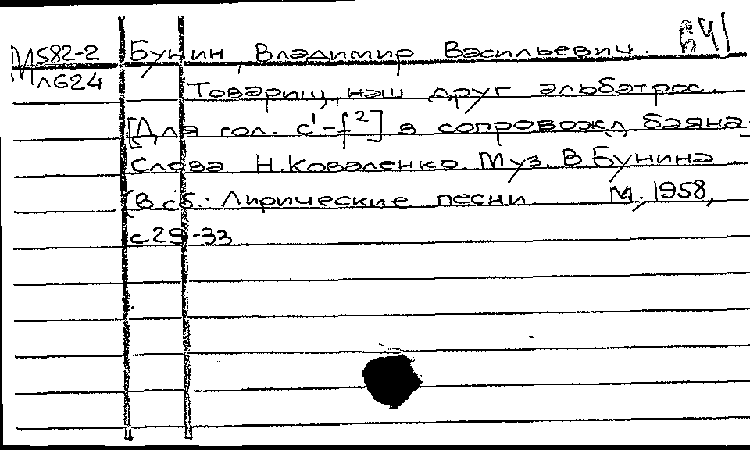 М582-2 Бунин, Владимир Васильевич. 641
Л624 Товарищ, наш друг альбатрос.
[Для гол. c¹-f²] в сопровожд. баяна.
Слова Н.Коваленко. Муз. В.Бунина
[В сб.: Лирические песни. М., 1958,
с.29-33